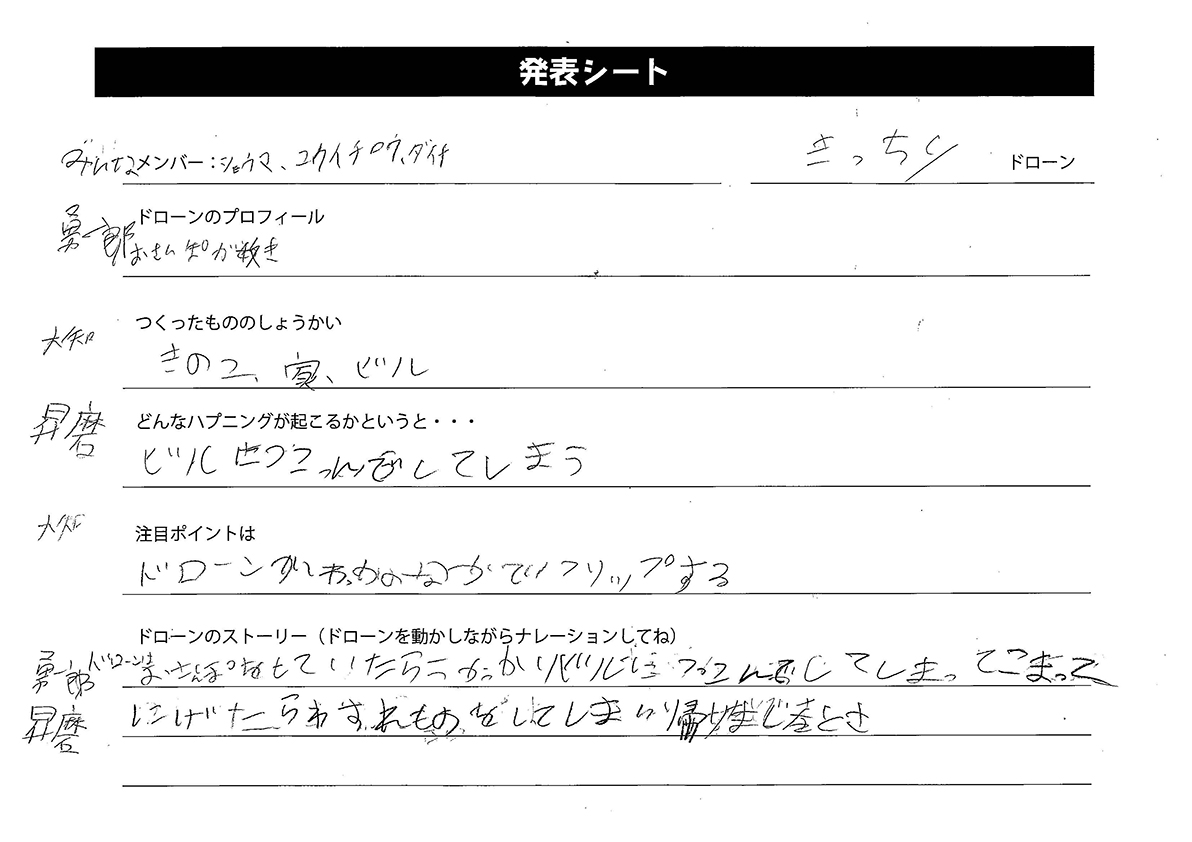 発表シート
みんな メンバー：ショウマ、ユウイチロウ、ダイチ きっちり ドローン
勇一郎 ドローンのプロフィール
おさんぽが好き
大知 つくったもののしょうかい
きのこ、家、ビル
昇磨 どんなハプニングが起こるかというと・・・
ビルにつっこんでしてしまう
大知 注目ポイントは
ドローンが わっかのなかでフリップする
ドローンのストーリー（ドローンを動かしながらナレーションしてね）
勇一郎 ドローンは おさんぽをしていたらうっかりビルに つっこんでしてしまってこまって
昇磨 にげたらわすれものをしてしまい帰り